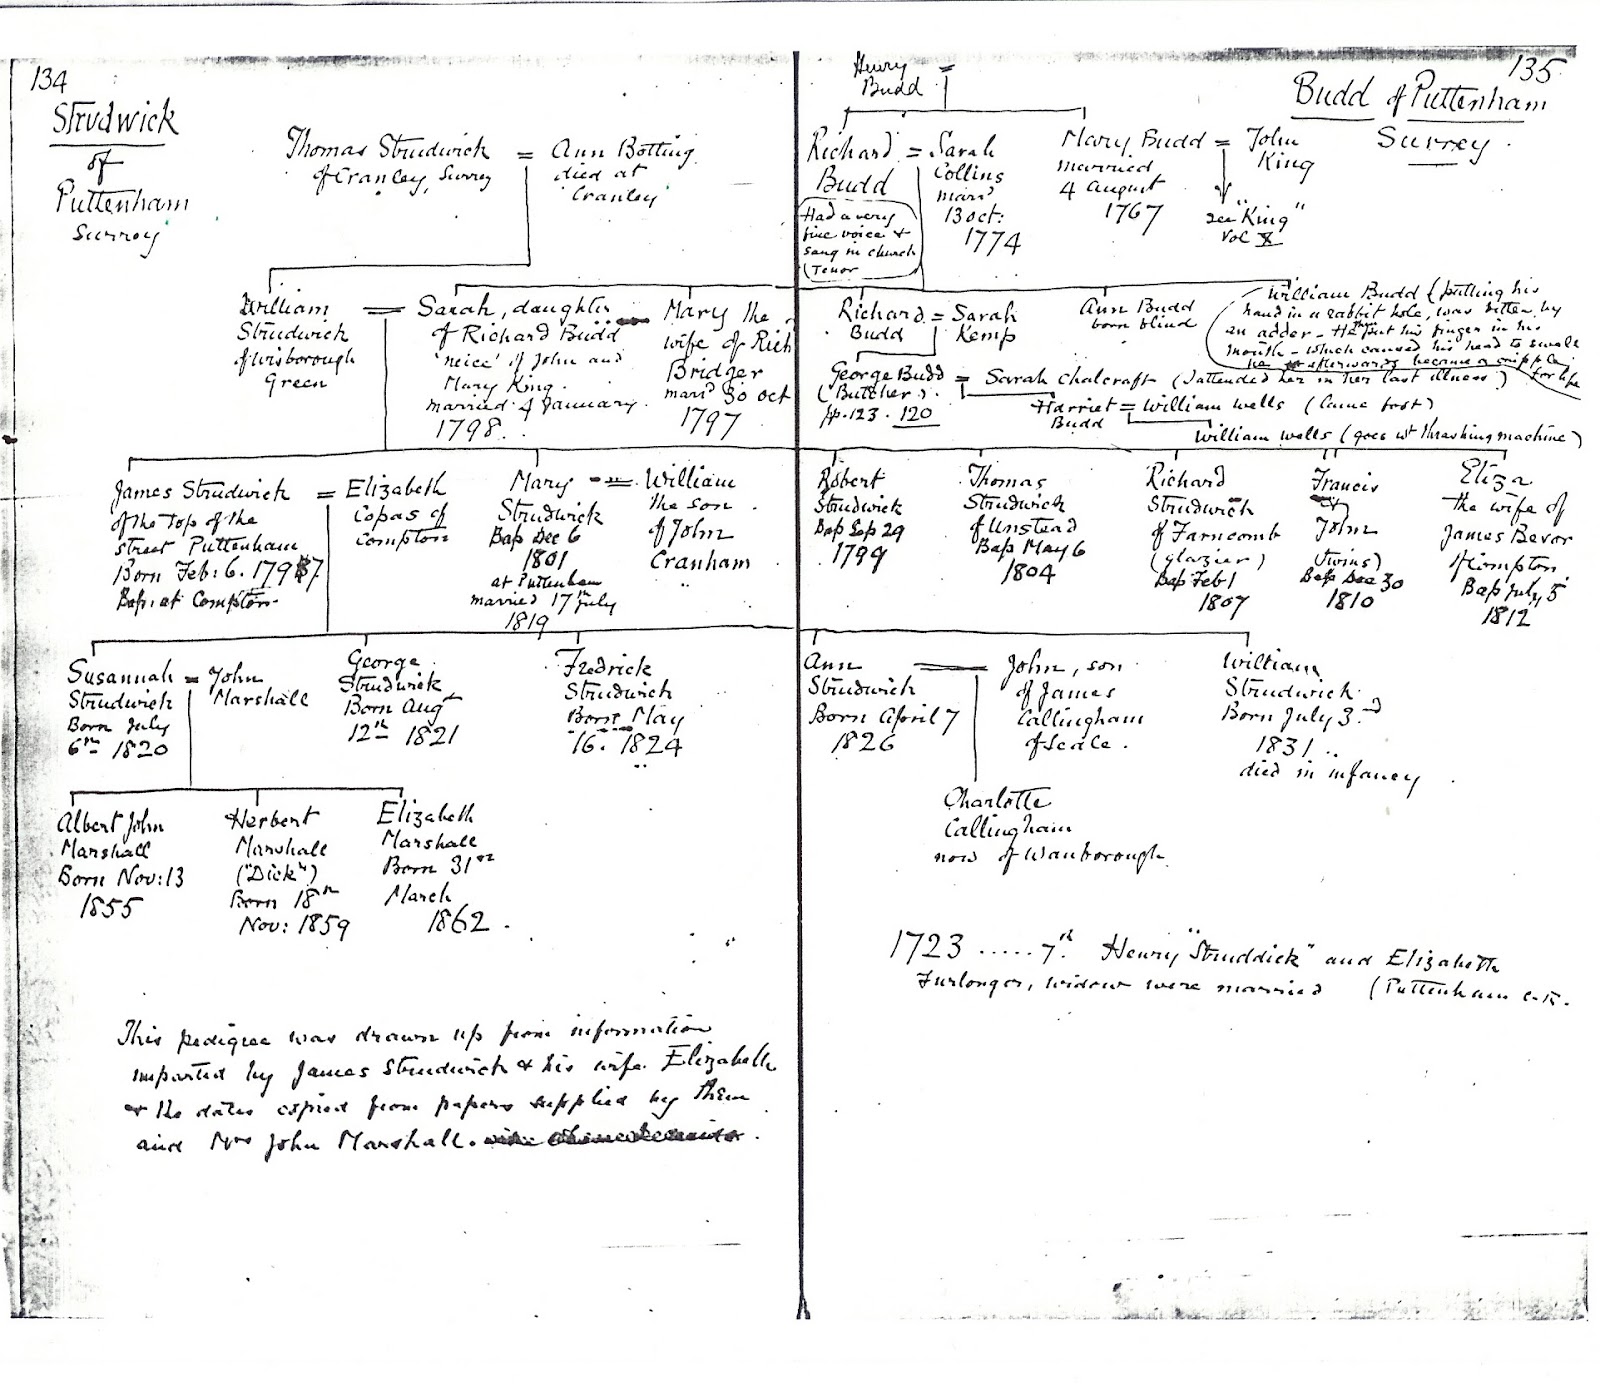 134
Strudwick
of
Puttenham
Surrey
Thomas Strudwick
of Cranley, Surrey
=
Ann Botting
died at
Cranley
William
Strudwick
of Wisborough
Green
=
Sarah, daughter
of Richard Budd
'neice' of John and
Mary King.
married 4 January.
1798.
Mary the
wife of Rich
Bridger
marr'd 30 oct
1797
James Strudwick
of the top of the
street Puttenham
Born Feb: 6. 1797
Bap: at Compton
=
Elizabeth
Copas of
Compton
Mary
Strudwick
Bap Dec 6
1801
at Puttenham
married 17th July
1819
=
William
the son
of John
Cranham
Susannah
Strudwick
Born July
6th 1820
=
John
Marshall
George
Strudwick
Born Augst
12th 1821
Fredrick
Strudwick
Born May
16. 1824
Albert John
Marshall
Born Nov: 13
1855
Herbert
Marshall
("Dick")
Born 18th
Nov: 1859
Elizabeth
Marshall
Born 31st
March
1862.
This pedigree was drawn up from information
imparted by James Strudwick & his wife Elizabeth
& the dates copied from papers supplied by them
and Mrs John Marshall.
135
Budd of Puttenham
Surrey.
Henry
Budd
=
Richard
Budd
Had a very
fine voice &
sang in church
(Tenor
=
Sarah
Collins
marr'd
13 oct:
1774
Mary Budd
married
4 August
1767
=
John
King
see "King"
vol X
Richard
Budd
=
Sarah
Kemp
Ann Budd
born blind
William Budd (putting his
hand in a rabbit hole, was bitten by
an adder - He put his finger in his
mouth - which caused his head to swell
he afterwards became a cripple
for life
George Budd
(Butcher).
pp. 123. 120
=
Sarah Chalcraft (I attended her in her last illness)
Harriet
Budd
=
William Wells (Came frost)
William Wells (goes wt thrashing machine)
Robert
Strudwick
Bap Sep 29
1799
Thomas
Strudwick
of Unstead
Bap May 6
1804
Richard
Strudwick
of Farncomb
(glazier)
Bap Feb 1
1807
Francis
&
John
(twins)
Bap Dec 30
1810
Eliza
the wife of
James Bevor
of Compton
Bap July 5
1812
Ann
Strudwick
Born April 7
1826
=
John, son
of James
Callingham
of Seale.
William
Strudwick
Born July 3rd
1831
died in infancy
Charlotte
Callingham
now of Wanborough
1723 ..... 7th. Henry "Struddick" and Elizabeth
Furlonger, widow were married (Puttenham c.R.